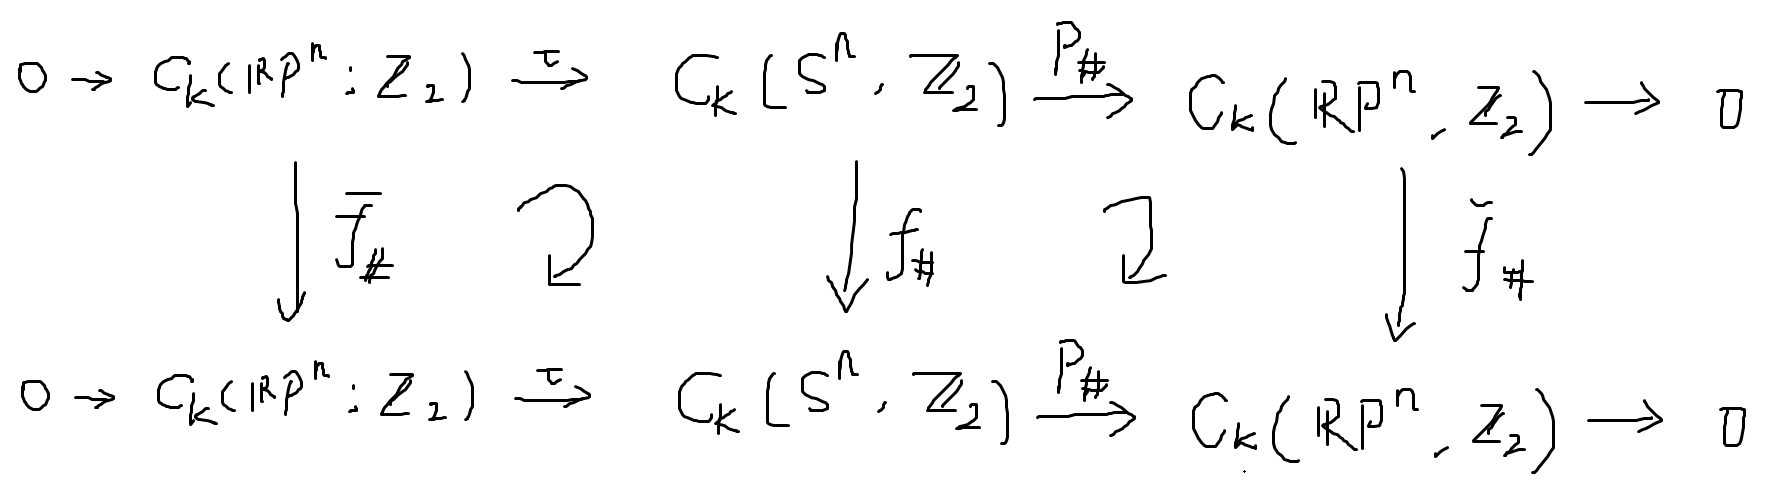 0 → C_k(ℝP^n; ℤ_2) →^τ C_k(S^n, ℤ_2) →^{P_#} C_k(ℝP^n, ℤ_2) → 0
↓ f̄_# ↓ f_# ↓ f̆_#
0 → C_k(ℝP^n; ℤ_2) →^τ C_k(S^n, ℤ_2) →^{P_#} C_k(ℝP^n, ℤ_2) → 0